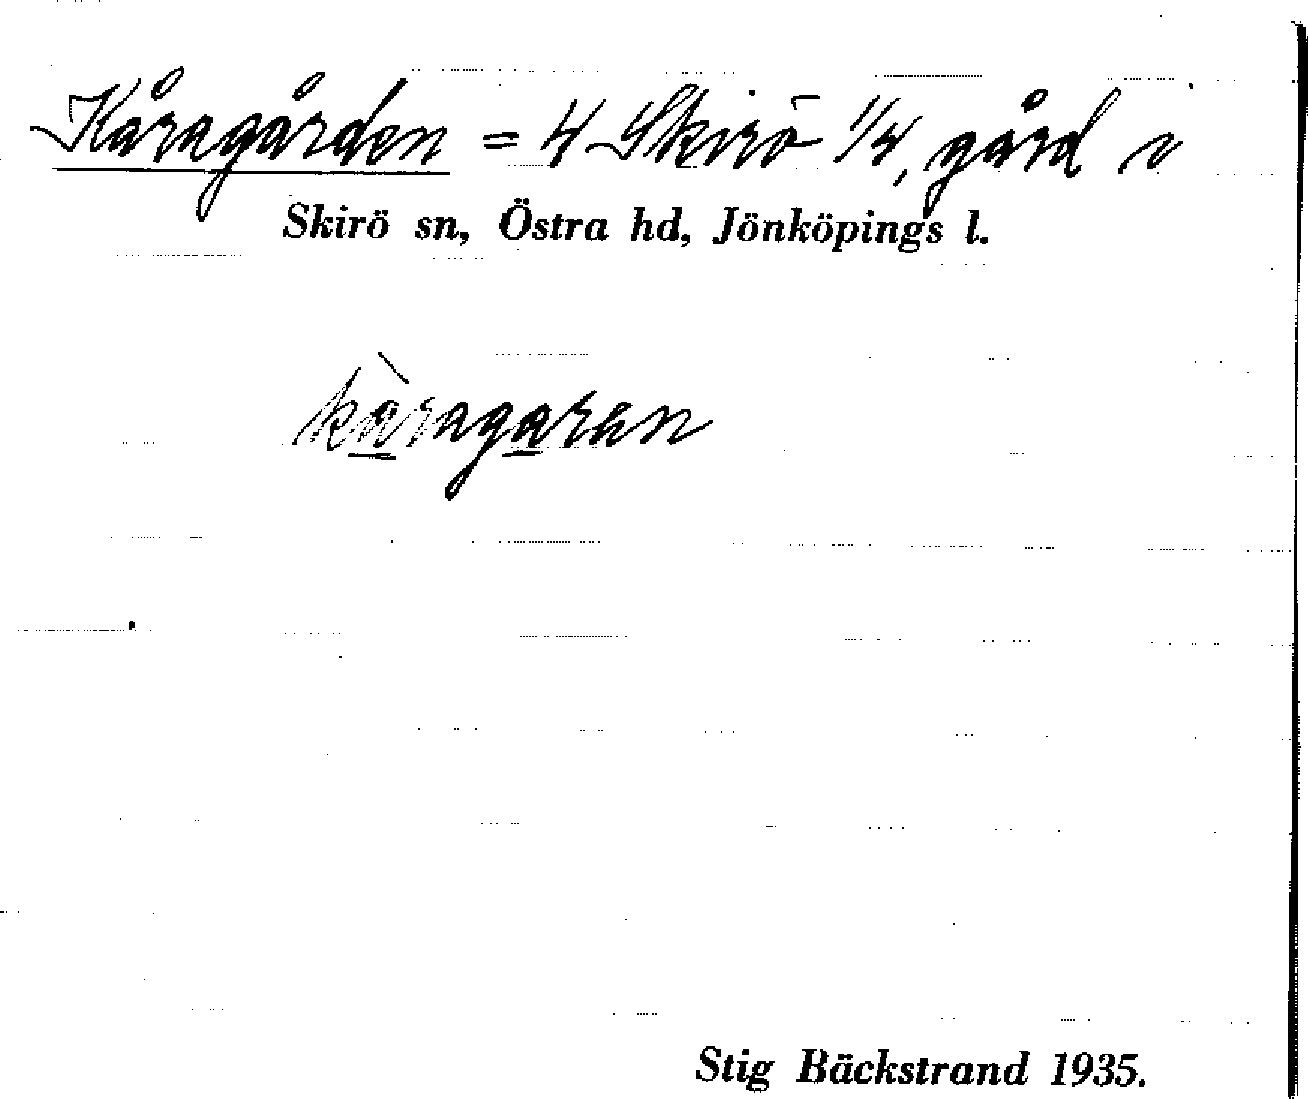 Kåragården = 4 Skirö 1/4, gård i
Skirö sn, Östra hd, Jönköpings l.
kàragaren
Stig Bäckstrand 1935.